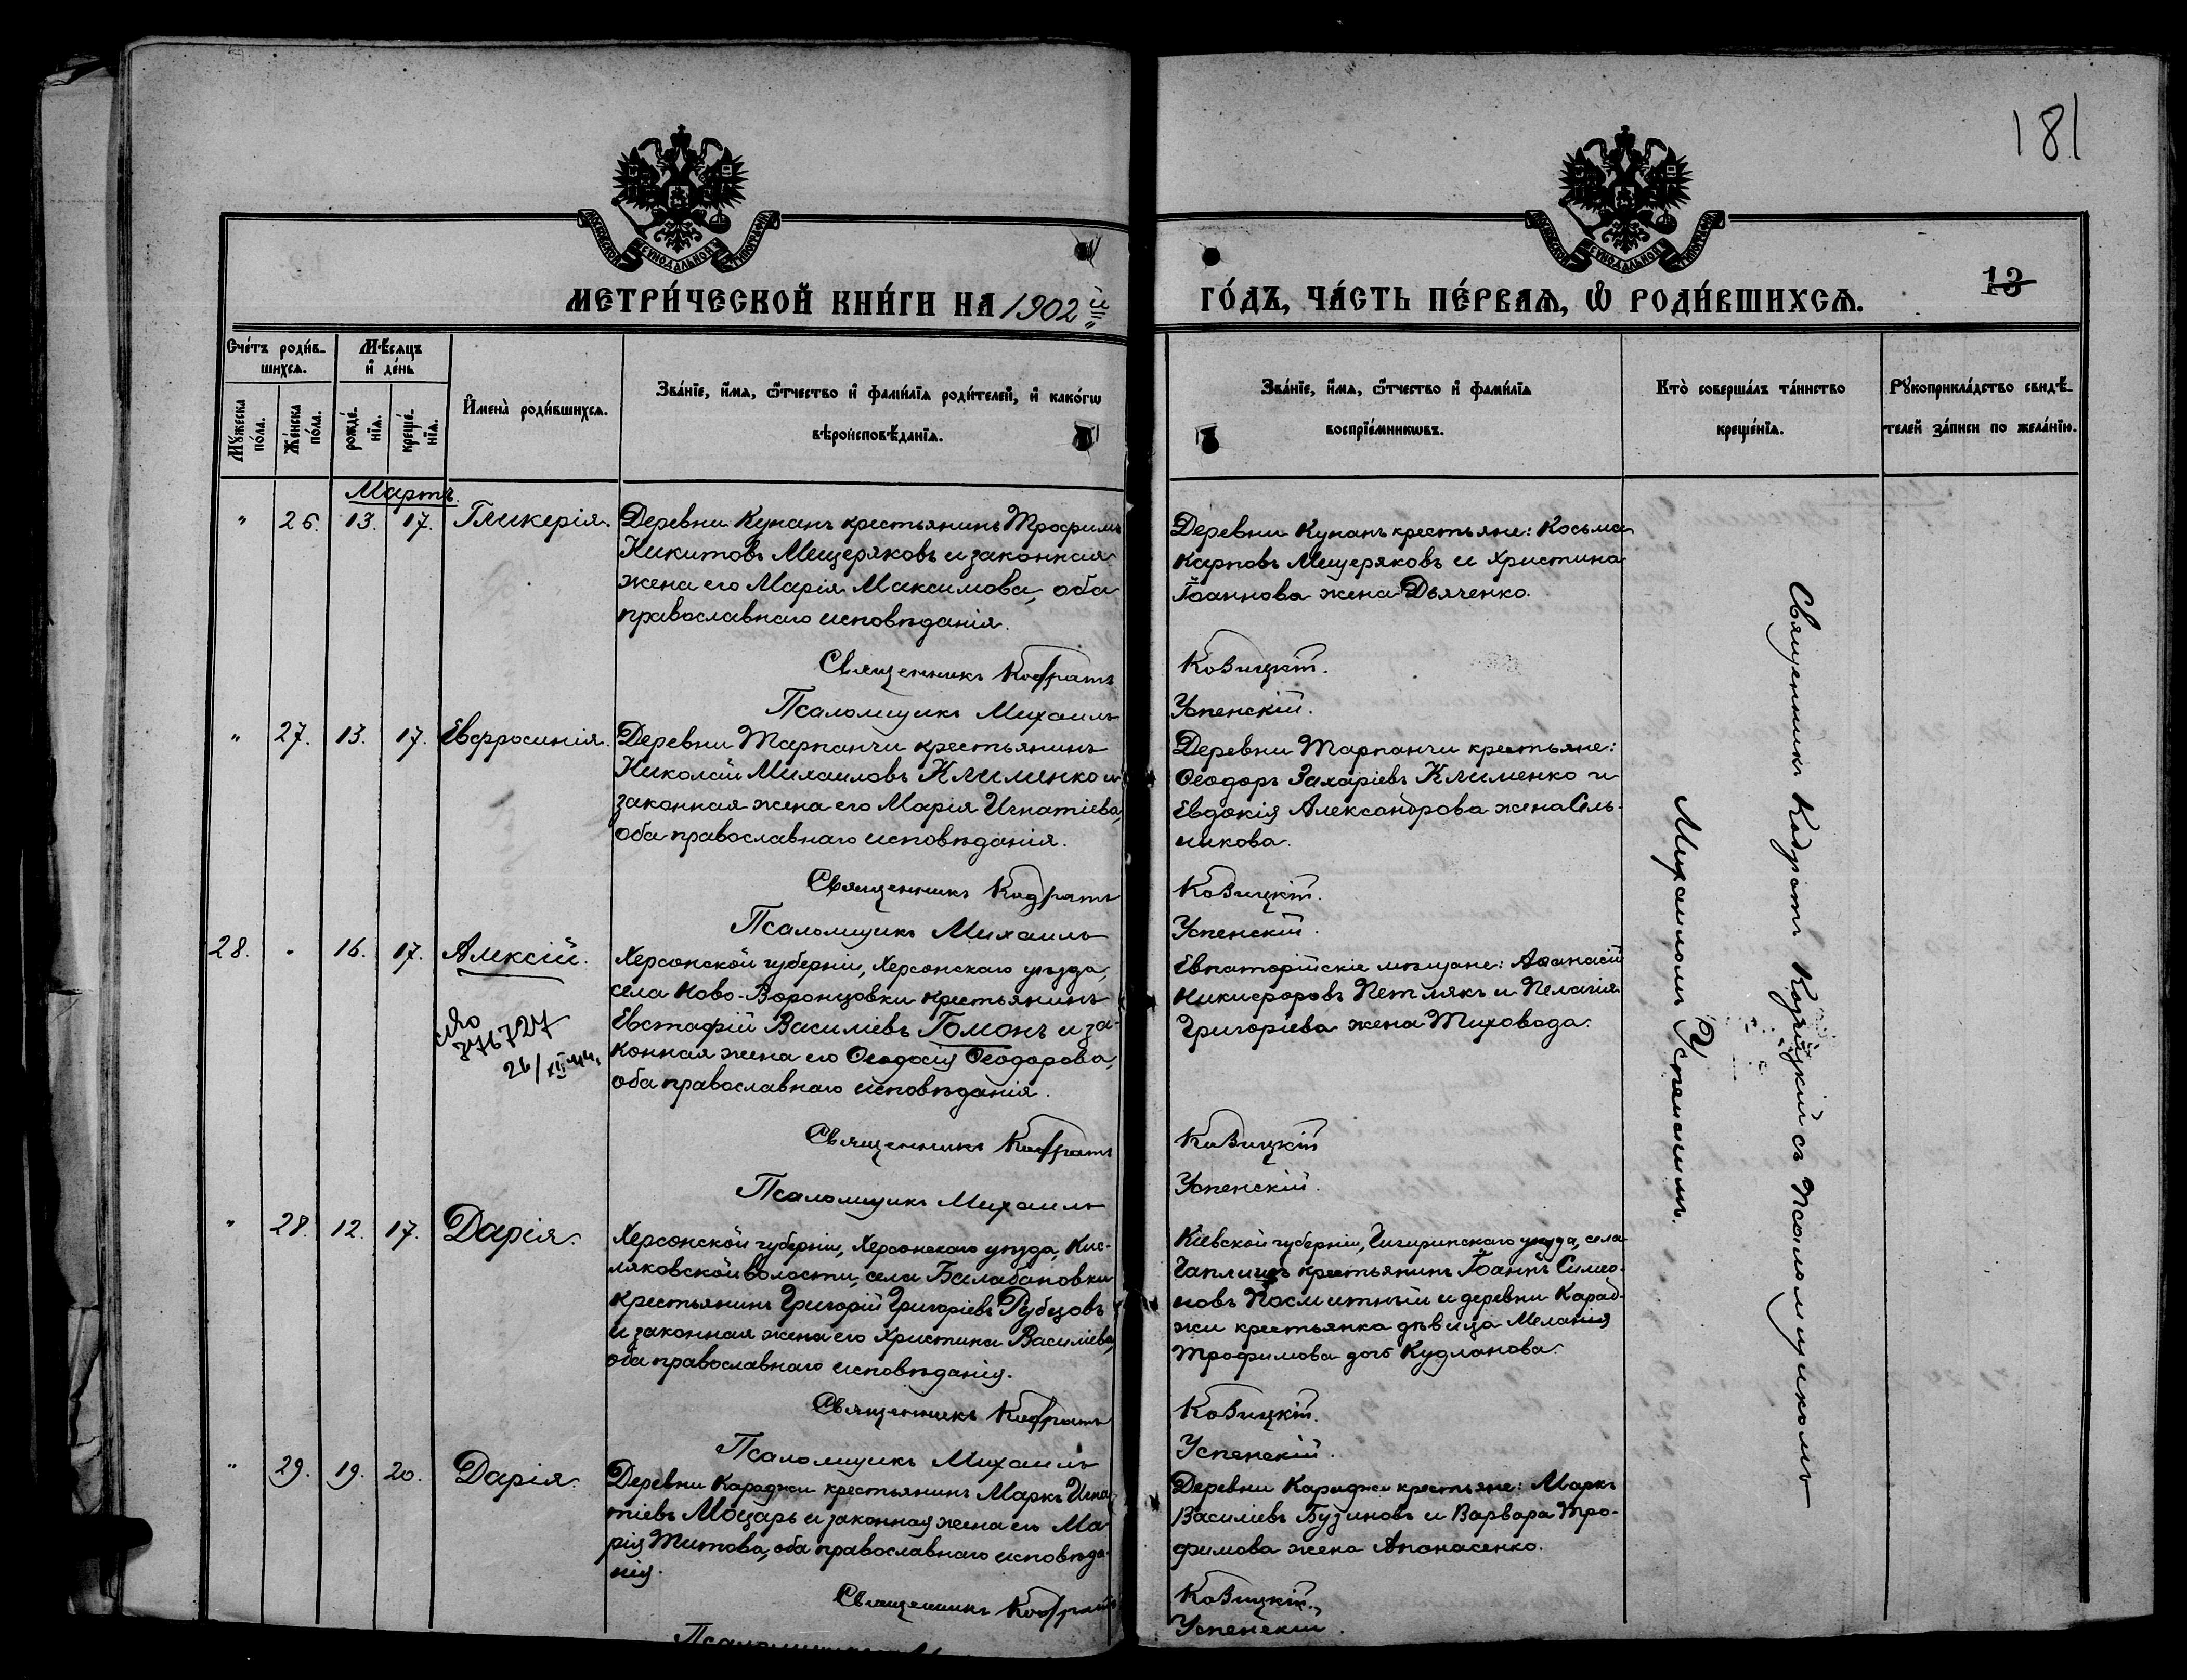 181
МОСКОВСКОЙ СУНОДАЛЬНОЙ ТИПОГРАФІИ
МОСКОВСКОЙ СУНОДАЛЬНОЙ ТИПОГРАФІИ
МЕТРИ́ЧЕСКОЙ КНИ́ГИ НА 1902й
ГО́ДЪ, ЧА́СТЬ ПЕ́РВАѦ, Ѡ РОДИ́ВШИХСѦ.
13
Сче́тъ роди́в-
шихсѧ.
Мѣ́сѧцъ
и҆ де́нь
Мꙋ́жеска по́ла.
Же́нска по́ла.
рожде́-
нїѧ.
креще́-
нїѧ.
И҆мена̀ роди́вшихсѧ.
Зва́нїе, и҆́мѧ, ѻ҆́тчество и҆ фами́лїѧ роди́телей, и҆ како́гѡ
вѣроисповѣ́данїѧ.
Зва́нїе, и҆́мѧ, ѻ҆́тчество и҆ фами́лїѧ
воспрїе́мникѡвъ.
Кто̀ соверша́лъ та́инство
креще́нїѧ.
Рꙋкоприкла́дство свидѣ́-
телей за́писи по жела́нїю.
Мартъ.
" 26. 13. 17. Гликерія.
Деревни Кунанъ крестьянинъ Трофимъ
Никитовъ Мещеряковъ и законная
жена его Марія Максимова, оба
православнаго исповѣданія.
Священникъ Кодратъ
Псаломщикъ Михаилъ
Деревни Кунанъ крестьяне: Косьма
Карповъ Мещеряковъ и Христина
Іоаннова жена Дьяченко.
Козицкій.
Успенскій.
" 27. 13. 17. Евфросинія.
Деревни Тарпанчи крестьянинъ
Николай Михаиловъ Клименко и
законная жена его Марія Игнатіева,
оба православнаго исповѣданія.
Священникъ Кодратъ
Псаломщикъ Михаилъ
Деревни Тарпанчи крестьяне:
Ѳеодоръ Захаріевъ Клименко и
Евдокія Александрова жена
никова.
Козицкій.
Успенскій.
28. " 16. 17. Алексій.
376727
26/XII
Херсонской губерніи, Херсонскаго уѣзда,
села Ново-Воронцовки крестьянинъ
Евстафій Василіевъ Гомонъ и за-
конная жена его Ѳеодосія Ѳеодорова,
оба православнаго исповѣданія.
Священникъ Кодратъ
Псаломщикъ Михаилъ
Евпаторійскіе мѣщане: Аѳанасій
Никифоровъ Петлякъ и Пелагія
Григоріева жена Тиховода.
Козицкій
Успенскій.
" 28. 12. 17. Дарія.
Херсонской губерніи, Херсонскаго уѣзда, Кис-
ляковской волости, села Балабановки
крестьянинъ Григорій Григоріевъ Рубцовъ
и законная жена его Христина Василіева,
оба православнаго исповѣданія.
Священникъ Кодратъ
Псаломщикъ Михаилъ
Кіевской губерніи, Чигиринскаго уѣзда, села
крестьянинъ Іоаннъ Симео-
новъ Посмитный и деревни Карад-
жи крестьянка дѣвица Меланія
Трофимова дочь Кудланова.
Козицкій.
Успенскій.
" 29. 19. 20. Дарія.
Деревни Караджи крестьянинъ Маркъ Игна-
тіевъ Моцарь и законная жена его Ма-
рія Титова, оба православнаго исповѣда-
нія.
Священникъ Кодратъ
Псаломщикъ
Деревни Караджи крестьяне: Маркъ
Василіевъ Бузиновъ и Варвара Тро-
фимова жена Апонасенко.
Козицкій.
Успенскій.
Священникъ Кодратъ Козицкій съ Псаломщикомъ
Михаиломъ Успенскимъ.